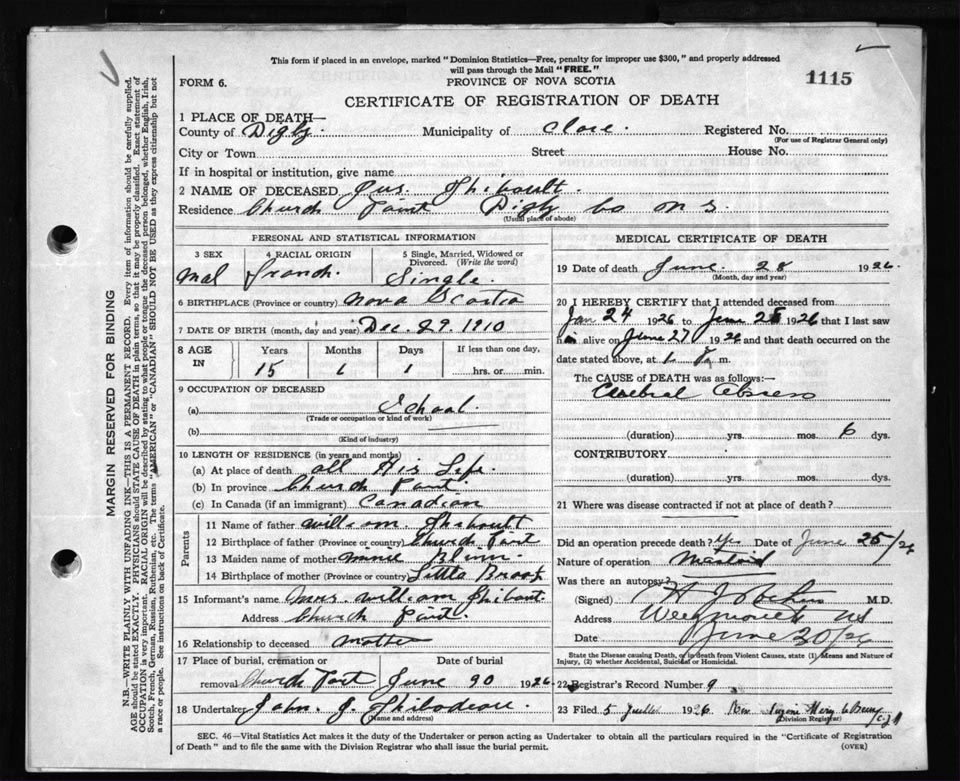 This form if placed in an envelope, marked "Dominion Statistics—Free, penalty for improper use $300," and properly addressed
will pass through the Mail "FREE."
1115
FORM 6.
PROVINCE OF NOVA SCOTIA
CERTIFICATE OF REGISTRATION OF DEATH
1 PLACE OF DEATH—
County of Digby. Municipality of Clare. Registered No.
(For use of Registrar General only)
City or Town Street House No.
If in hospital or institution, give name
2 NAME OF DECEASED Gus. Thiboult.
Residence Church Point Digby Co N S.
(Usual place of abode)
PERSONAL AND STATISTICAL INFORMATION
3 SEX 4 RACIAL ORIGIN 5 Single, Married, Widowed or
Divorced. (Write the word)
Mal Franch. Single.
6 BIRTHPLACE (Province or country) Nova Scotia
7 DATE OF BIRTH (month, day and year) Dec. 29. 1910
8 AGE IN Years Months Days If less than one day,
15 hrs. or min.
9 OCCUPATION OF DECEASED
(a) School.
(Trade or occupation or kind of work)
(b)
(Kind of industry)
10 LENGTH OF RESIDENCE (in years and months)
(a) At place of death all His Life.
(b) In province Church Point
(c) In Canada (if an immigrant) Canadian
Parents
11 Name of father William. Thiboult
12 Birthplace of father (Province or country) Church Point
13 Maiden name of mother Minnie
14 Birthplace of mother (Province or country) Little Brook
15 Informant's name Mrs. William Thiboult.
Address Church Point.
16 Relationship to deceased Mother
17 Place of burial, cremation or Date of burial
removal Church Point June 30 1926.
18 Undertaker John. J. Thibodeau.
(Name and address)
MEDICAL CERTIFICATE OF DEATH
19 Date of death June. 28 1926.
(Month, day and year)
20 I HEREBY CERTIFY that I attended deceased from
Jan 24 1926 to June 1926 that I last saw
him alive on June 27 1926 and that death occurred on the
date stated above, at m.
The CAUSE of DEATH was as follows:—
Cerebral Abscess
(duration) yrs. mos. 6 dys.
CONTRIBUTORY
(duration) yrs. mos. dys.
21 Where was disease contracted if not at place of death?
Did an operation precede death? Yes Date of June 25/26
Nature of operation Mastoid
Was there an autopsy?
(Signed) M.D.
Address Weymouth NS
Date June 30/26
State the Disease causing Death, or in death from Violent Causes, state (1) Means and Nature of
Injury, (2) whether Accidental, Suicidal or Homicidal.
22 Registrar's Record Number 9
23 Filed 5 Juillet 1926
(Division Registrar)
SEC. 46—Vital Statistics Act makes it the duty of the Undertaker or person acting as Undertaker to obtain all the particulars required in the "Certificate of Registration
of Death" and to file the same with the Division Registrar who shall issue the burial permit.
(OVER)
MARGIN RESERVED FOR BINDING
N.B.—WRITE PLAINLY WITH UNFADING INK—THIS IS A PERMANENT RECORD. Every item of information should be carefully supplied.
AGE should be stated EXACTLY. PHYSICIANS should STATE CAUSE OF DEATH in plain terms, so that it may be properly classified. Exact statement of
OCCUPATION is very important. RACIAL ORIGIN will be described by stating to what people or tongue the deceased person belonged, whether English, Irish,
Scotch, French, German, Russian, Ruthenian, etc. The terms "AMERICAN" or "CANADIAN" SHOULD NOT BE USED as they express citizenship but not
a race or people. See instructions on back of Certificate.